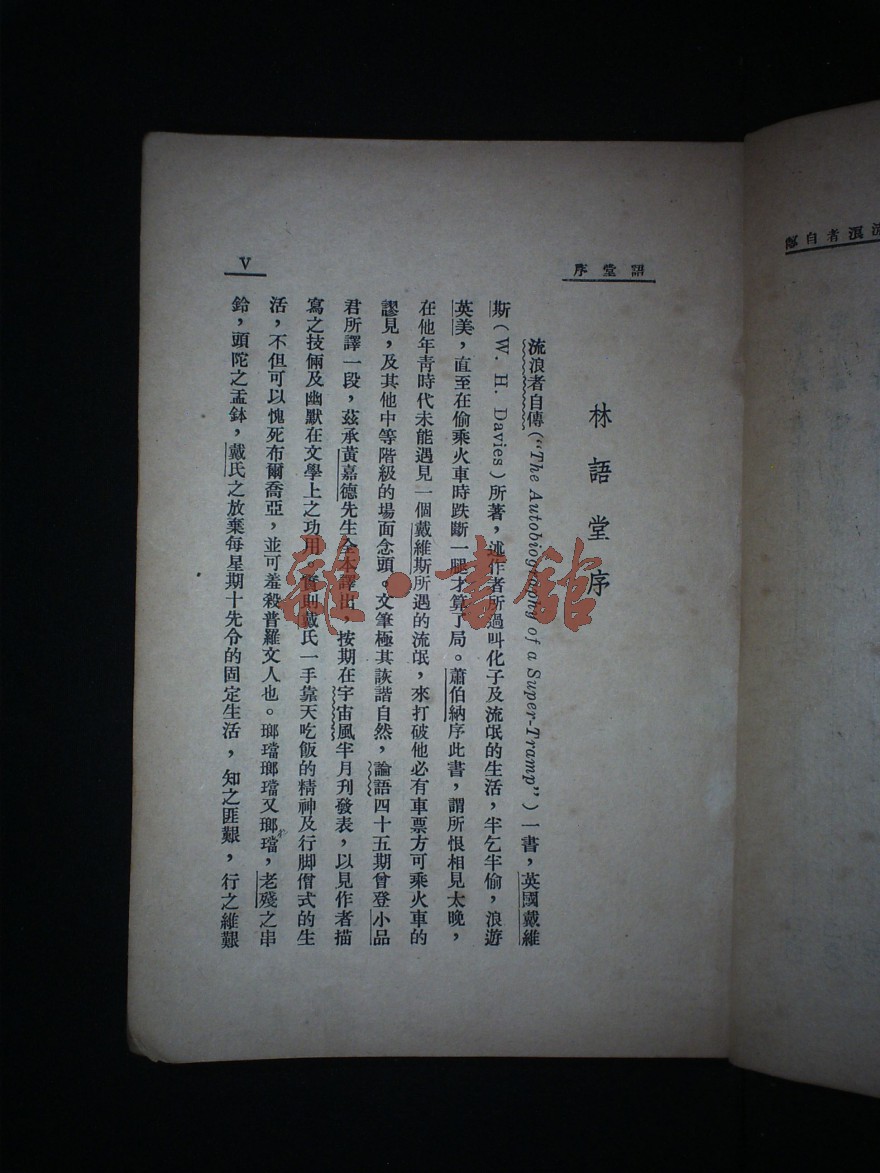 流浪者自傳
語堂序
V
林語堂序
流浪者自傳(“The Autobiography of a Super-Tramp”)一書，英國戴維
斯(W. H. Davies)所著，述作者所過叫化子及流氓的生活，半乞半偷，浪遊
英美，直至在偷乘火車時跌斷一腿才算了局。蕭伯納序此書，謂所恨相見太晚，
在他年青時代未能遇見一個戴維斯所遇的流氓，來打破他必有車票方可乘火車的
謬見，及其他中等階級的場面念頭。文筆極其詼諧自然，論語四十五期曾登小品
君所譯一段，茲承黃嘉德先生全本譯出，按期在宇宙風半月刊發表，以見作者描
寫之技倆及幽默在文學上之功用，實則戴氏一手靠天吃飯的精神及行脚僧式的生
活，不但可以愧死布爾喬亞，並可羞殺普羅文人也。瑯璫瑯璫又瑯璫，老殘之串
鈴，頭陀之盂鉢，戴氏之放棄每星期十先令的固定生活，知之匪艱，行之維艱
雜·書館